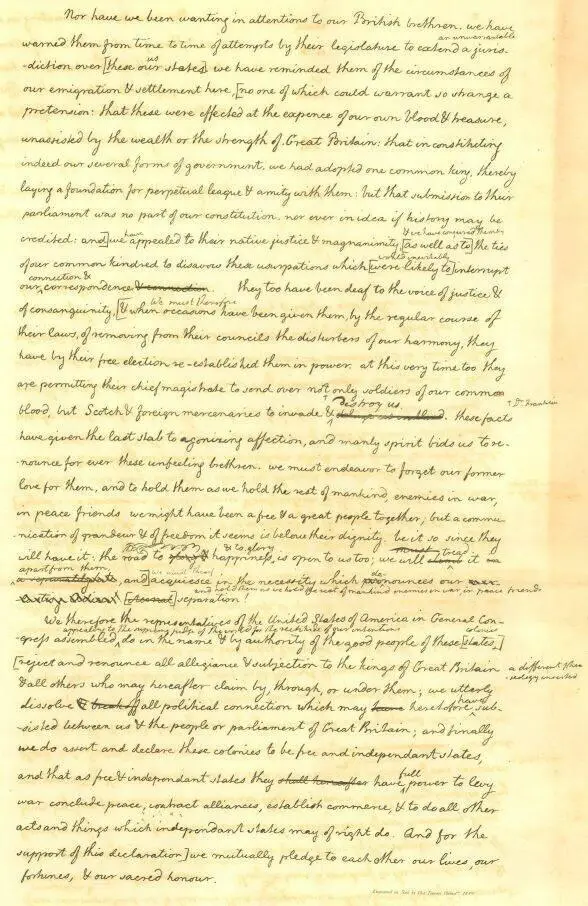 Nor have we been wanting in attentions to our British brethren. we have
an unwarrantable
warned them from time to time of attempts by their legislature to extend a juris-
us
-diction over [these our states] we have reminded them of the circumstances of
our emigration & settlement here, [no one of which could warrant so strange a
pretension: that these were effected at the expence of our own blood & treasure,
unassisted by the wealth or the strength of Great Britain: that in constituting
indeed our several forms of government, we had adopted one common king, thereby
laying a foundation for perpetual league & amity with them: but that submission to their
parliament was no part of our constitution, nor ever in idea if history may be
have & we have conjured them by
credited: and] we appealed to their native justice & magnanimity [as well as to] the ties
would inevitably
of our common kindred to disavow these usurpations which [were likely to] interrupt
connection &
our correspondence & connection. they too have been deaf to the voice of justice &
We must therefore
of consanguinity, [& when occasions have been given them, by the regular course of
their laws, of removing from their councils the disturbers of our harmony, they
have by their free election re-established them in power. at this very time too they
are permitting their chief magistrate to send over not only soldiers of our common
destroy us
blood, but Scotch & foreign mercenaries to invade & . these facts
† Dr. Franklin
have given the last stab to agonizing affection, and manly spirit bids us to re-
nounce for ever these unfeeling brethren. we must endeavor to forget our former
love for them, and to hold them as we hold the rest of mankind, enemies in war,
in peace friends. we might have been a free & a great people together; but a commu-
nication of grandeur & of freedom it seems is below their dignity. be it so since they
& to glory must tread
will have it: the road to happiness is open to us too; we will it
apart from them,
and] acquiesce in the necessity which denounces our
and hold them as we hold the rest of mankind enemies in war, in peace friends
[eternal] separation!
We therefore the representatives of the United States of America in General Con-
appealing to the supreme judge of the world for the rectitude of our intentions colonies
gress assembled, do in the name & by authority of the good people of these [states,]
[reject and renounce all allegiance & subjection to the kings of Great Britain
a different
& all others who may hereafter claim by, through, or under them; we utterly
have
dissolve & break off all political connection which may have heretofore sub-
-sisted between us & the people or parliament of Great Britain; and finally
we do assert and declare these colonies to be free and independant states,
full
and that as free & independant states they shall hereafter have power to levy
war conclude peace, contract alliances, establish commerce, & to do all other
acts and things which independant states may of right do. And for the
support of this declaration] we mutually pledge to each other our lives, our
fortunes, & our sacred honour.